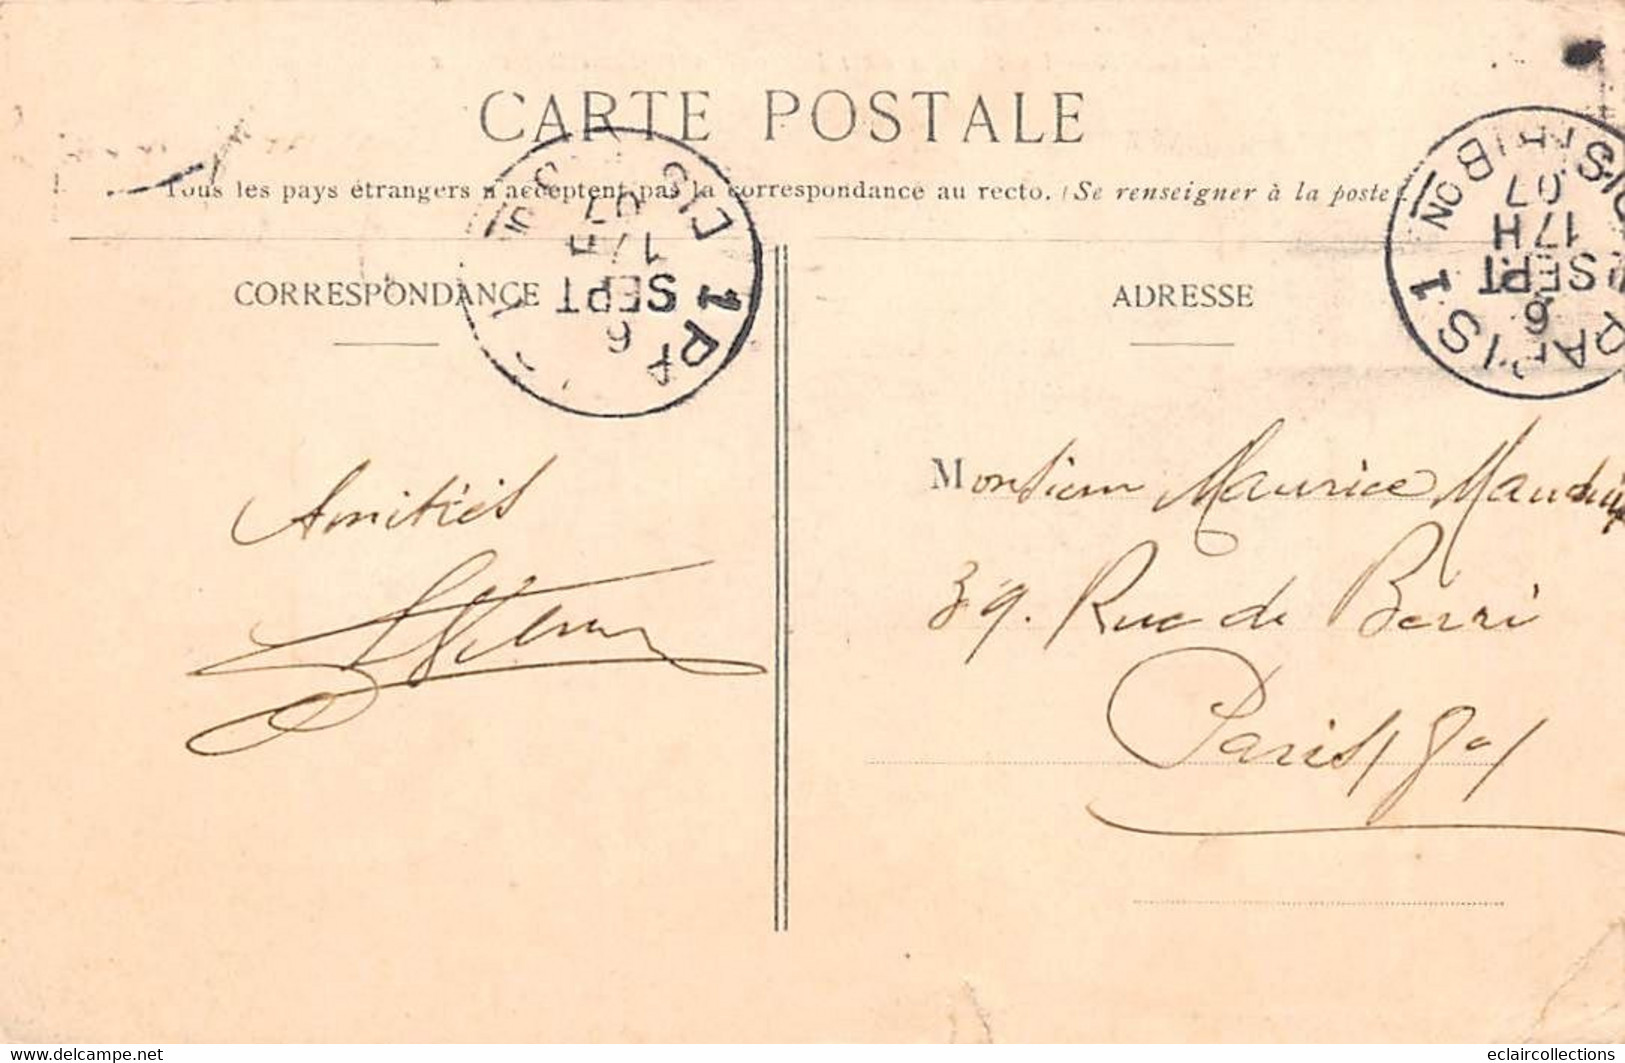 CARTE POSTALE
Tous les pays étrangers n'acceptent pas la correspondance au recto. (Se renseigner à la poste)
CORRESPONDANCE
ADRESSE
PARIS 1 DISTRIBON
6 SEPT
17H
07
6 SEPT
17H
07
Amitiés
Monsieur Maurice
39. Rue de Berri
Paris / 8e /
https://www.delcampe.net
eclaircollections